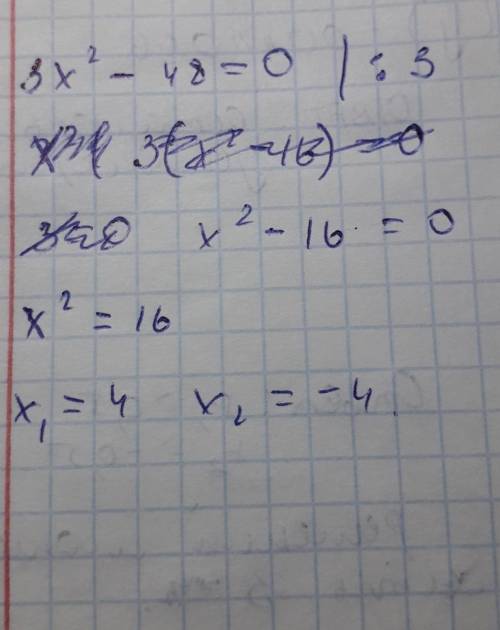 3x² - 48 = 0 | : 3
3(x² - 16) = 0
3=0 x² - 16 = 0
x² = 16
x₁ = 4 x₂ = -4